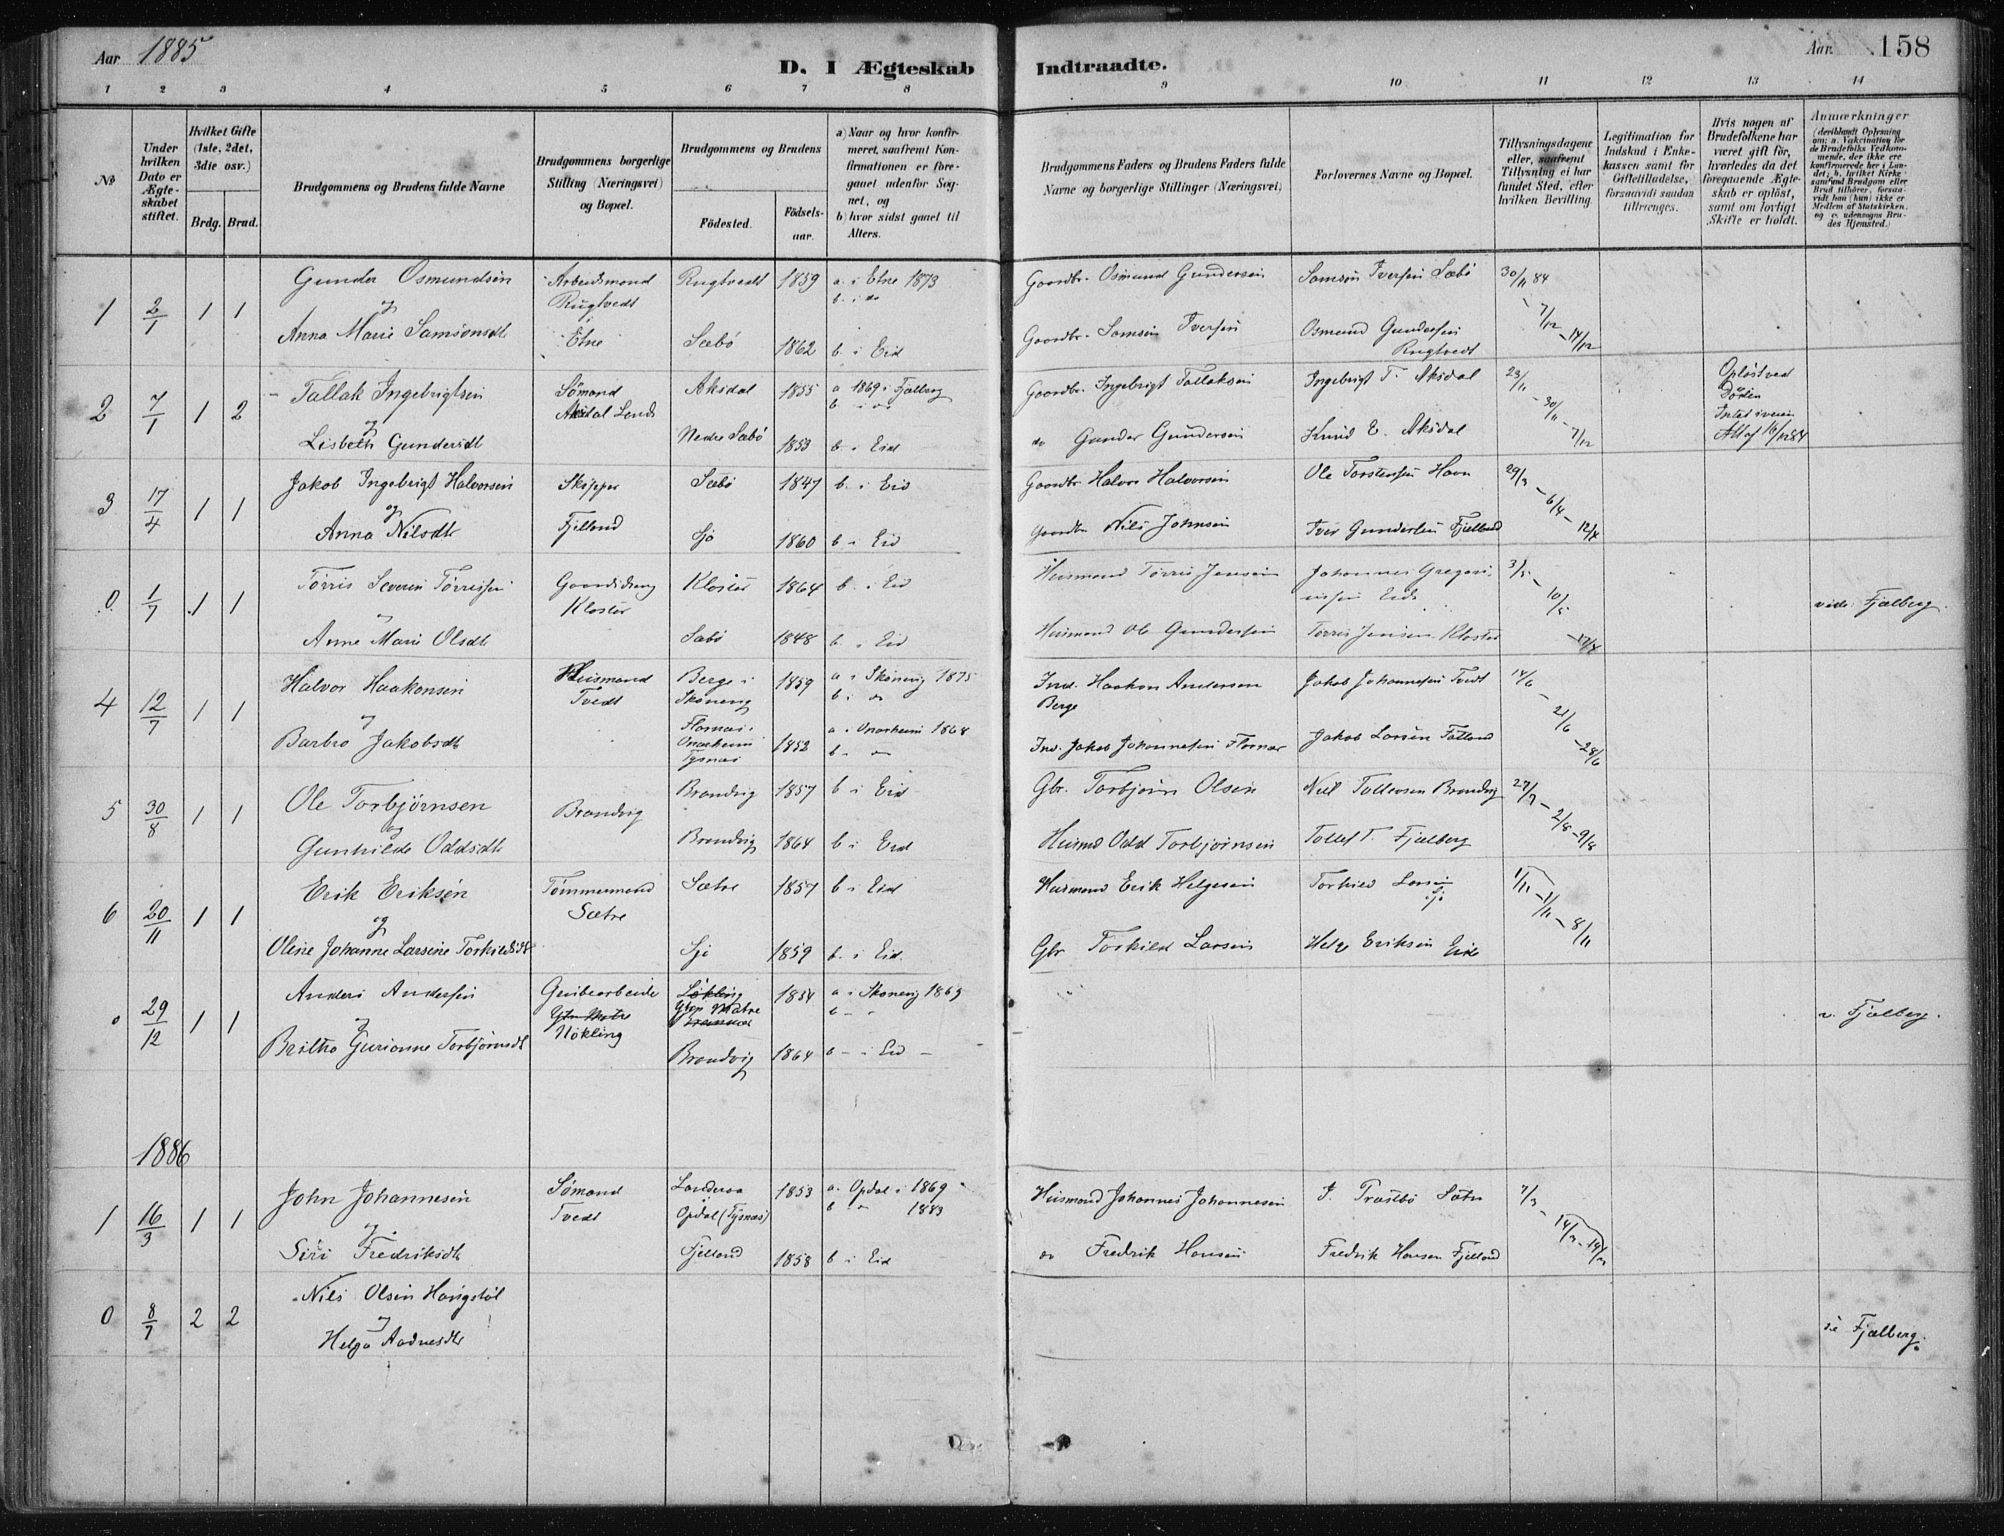 Aar 1885
D. I Ægteskab Indtraadte.
Aar 158
1 2 3 4 5 6 7 8 9 10 11 12 13 14
No
Under hvilken Dato er Ægteskabet stiftet.
Hvilket Gifte (1ste, 2det, 3die osv.)
Brdg. Brud.
Brudgommens og Brudens fulde Navne
Brudgommens borgerlige Stilling (Næringsvei) og Bopæl.
Brudgommens og Brudens
Födested. Födselsaar.
a) Naar og hvor konfirmeret, saafremt Konfirmationen er foregaaet udenfor Sognet, og
b) hvor sidst gaaet til Alters.
Brudgommens Faders og Brudens Faders fulde Navne og borgerlige Stillinger (Næringsvei)
Forlovernes Navne og Bopæl.
Tillysningsdagene eller, saafremt Tillysning ei har fundet Sted, efter hvilken Bevilling.
Legitimation for Indskud i Enkekassen samt for Giftetilladelse, forsaavidt saadan tiltrænges.
Hvis nogen af Brudefolkene har været gift för, hvorledes da det foregaaende Ægteskab er oplöst, samt om lovligt Skifte er holdt.
Anmærkninger (deriblandt Oplysning om: a. Vakcination for de Brudefolks Vedkommende, der ikke ere konfirmerede her i Landet; b. hvilket Kirkesamfund Brudgom eller Brud tilhörer, forsaavidt han (hun) ikke er Medlem af Statskirken, og c. udensogns Brudes Hjemsted.)
1 2/1 1 1 Gunder Osmundsen Arbeidsmand Rugtvedt 1859 a. i Etne 1873 Gaardbr. Osmund Gundersen Samson Iversen Sæbö 30/11 84
og Rugtvedt b. i do - 7/12
Anna Marie Samsonsdt Etne Sæbö 1862 b. i Eid Gaardbr. Samson Iversen Osmund Gundersen Rugtvedt - 14/12
2 7/1 1 2 Tallak Ingebrigtsen Sömand Aksdal 1855 a 1869 i Fjelberg Gaardbr. Ingebrigt Tallaksen Ingebrigt T. Aksdal 23/11 Oplöst ved
og Aksdal b i do - 30/11 Döden
Lisbeth Gundersdt Nedre Sæbö 1853 b. i Eid do Gunder Gundersen Knud E. Aksdal - 7/12
3 17/4 1 1 Jakob Ingebrigt Halvorsen Skipper Sæbö 1847 b. i Eid Gaardbr. Halvor Halvorsen Ole Torstensen Havn 29/3
og - 6/4
Anna Nilsdt Fjelland Sjo 1860 b i Eid Gaardbr. Nils Johnsen Iver Gundersen Fjelland - 12/4
0. 1/7 1 1 Torris Severin Torrissen Gaardsdreng Kloster 1864 b. i Eid Husmand Torris Jensen Johannes Gregoriussen Eide 3/5 - 10/5
og Kloster vide Fjælberg.
Anne Marie Olsdt Sæbö 1848 b. i Eid Husmand Ole Gundersen Torris Jensen Kloster
4 12/7 1 1 Halvor Haakonsen Husmand Berge i 1859 a i Skonevig 1875 Ind. Haakon Andersen Jakob Johannesen Tvedt 14/6
og Tvedt Skonevig b. i do Berge - 21/6
Barbro Jakobsdt Onarheim Tysnæs 1852 a. i Onarheim 1868 Ind. Jakob Johannesen Jakob Larsen - 28/6
5 30/8 1 1 Ole Torbjörnsen Brandvig Brandvig 1857 b i Eid Gbr. Torbjörn Olsen Brandvig - 2/8
og - 9/8
Gunhilde Oddsdt Brandvig 1864 b i Eid Husmd Odd Torbjörnsen Tollef T. Fjælberg
6 20/11 1 1 Erik Eriksen Tömmermand Sætre 1857 b i Eid Husmand Erik Helgesen Torkild Larsen Sjo 1/11 - 1/11 - 8/11
og Sætre
Oline Johanne Larsine Torkildsdt Sjo 1859 b. i Eid. Gbr Torkild Larsen Helge Eriksen Eide
0 29/12 1 1 Anders Andersen Grubearbeider 1854 a i Skonevig 1869
og v. Fjælberg.
Britha Gurianne Torbjörnsdt Brandvig 1864 b - i Eid -
1886
1 16/3 1 1 John Johannesen Sömand 1853 a. Opdal i 1869 Husmand Johannes Johannesen 7/3
og Tvedt Opdal (Tysnæs) b " 1883 - 14/3
Siri Fredriksdt Fjelland 1858 b i Eid do Fredrik Hansen Fredrik Hansen Fjelland
0 8/7 2 2 Nils Olsen
og
Helga Aadnesdt Fjælberg.